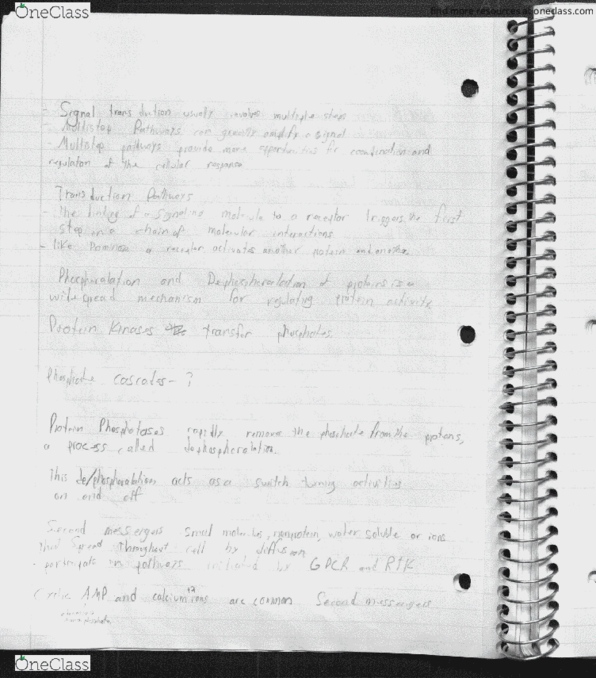 OneClass
find more resources at oneclass.com
- Signal transduction usually involves multiple steps
- Multistep Pathways can greatly amplify a signal
- Multistep pathways provide more opportunities for coordination and
regulation of the cellular response
Transduction Pathways
- The binding of a signaling molecule to a receptor triggers the first
step in a chain of molecular interactions
- Like Dominos a receptor activates another protein and another
Phosphorolation and Dephosphorolation of proteins is a
widespread mechanism for regulating protein activity
Protein Kinases transfer phosphates
cascades - ?
Protein Phosphotases rapidly remove the phosphate from the proteins,
a process called dephosphorolation.
This de/phosphorolation acts as a switch turning activities
on and off
Second messengers small molecules, nonprotein, water soluble or ions
that spread throughout cell by diffusion
- participate in pathways initiated by GPCR and RTK
Cyclic AMP and calcium ions are common Second messengers
OneClass